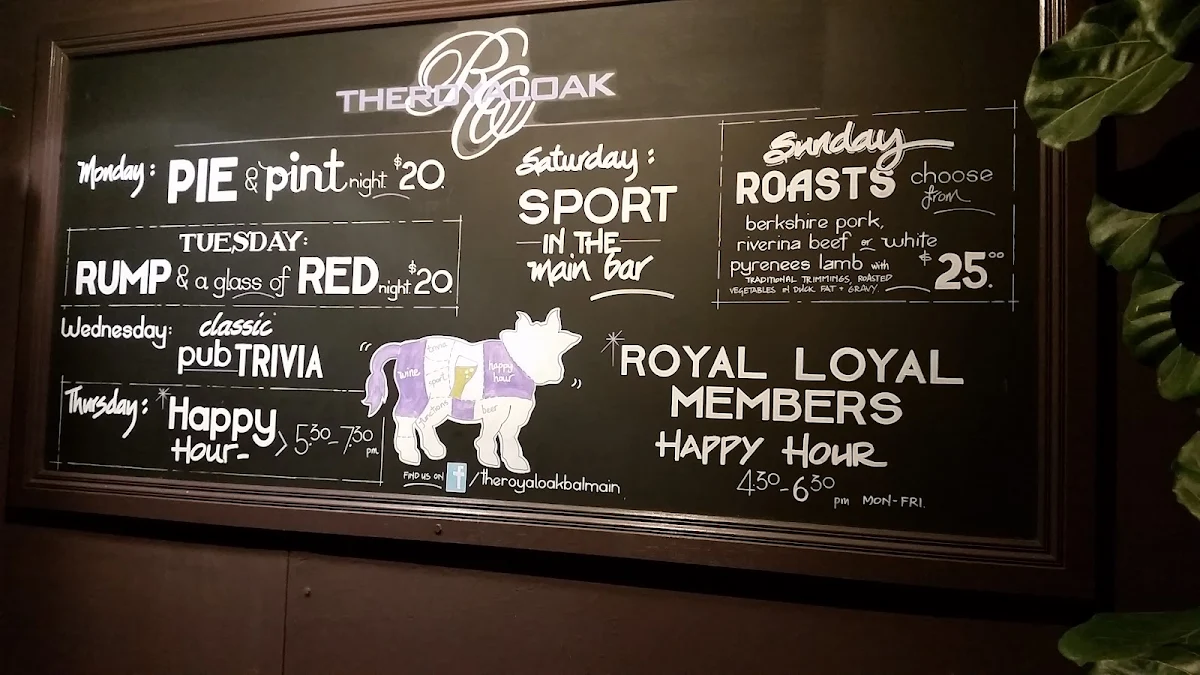 THEROYALOAK
Monday: PIE & pint night $20.
TUESDAY:
RUMP & a glass of RED night $20.
Wednesday: classic
pub TRIVIA
Thursday: *Happy
Hour- > 5:30-7:30 pm
Saturday:
SPORT
IN THE
main bar
Sunday
ROASTS choose
from
berkshire pork,
riverina beef or white
pyrenees lamb with $25.00
TRADITIONAL TRIMMINGS, ROASTED
VEGETABLES IN DUCK FAT + GRAVY.
wine
trivia
sport
happy
hour
functions
beer
FIND US ON f /theroyaloakbalmain
*ROYAL LOYAL
MEMBERS
HAPPY HOUR
4:30-6:30
pm MON-FRI.